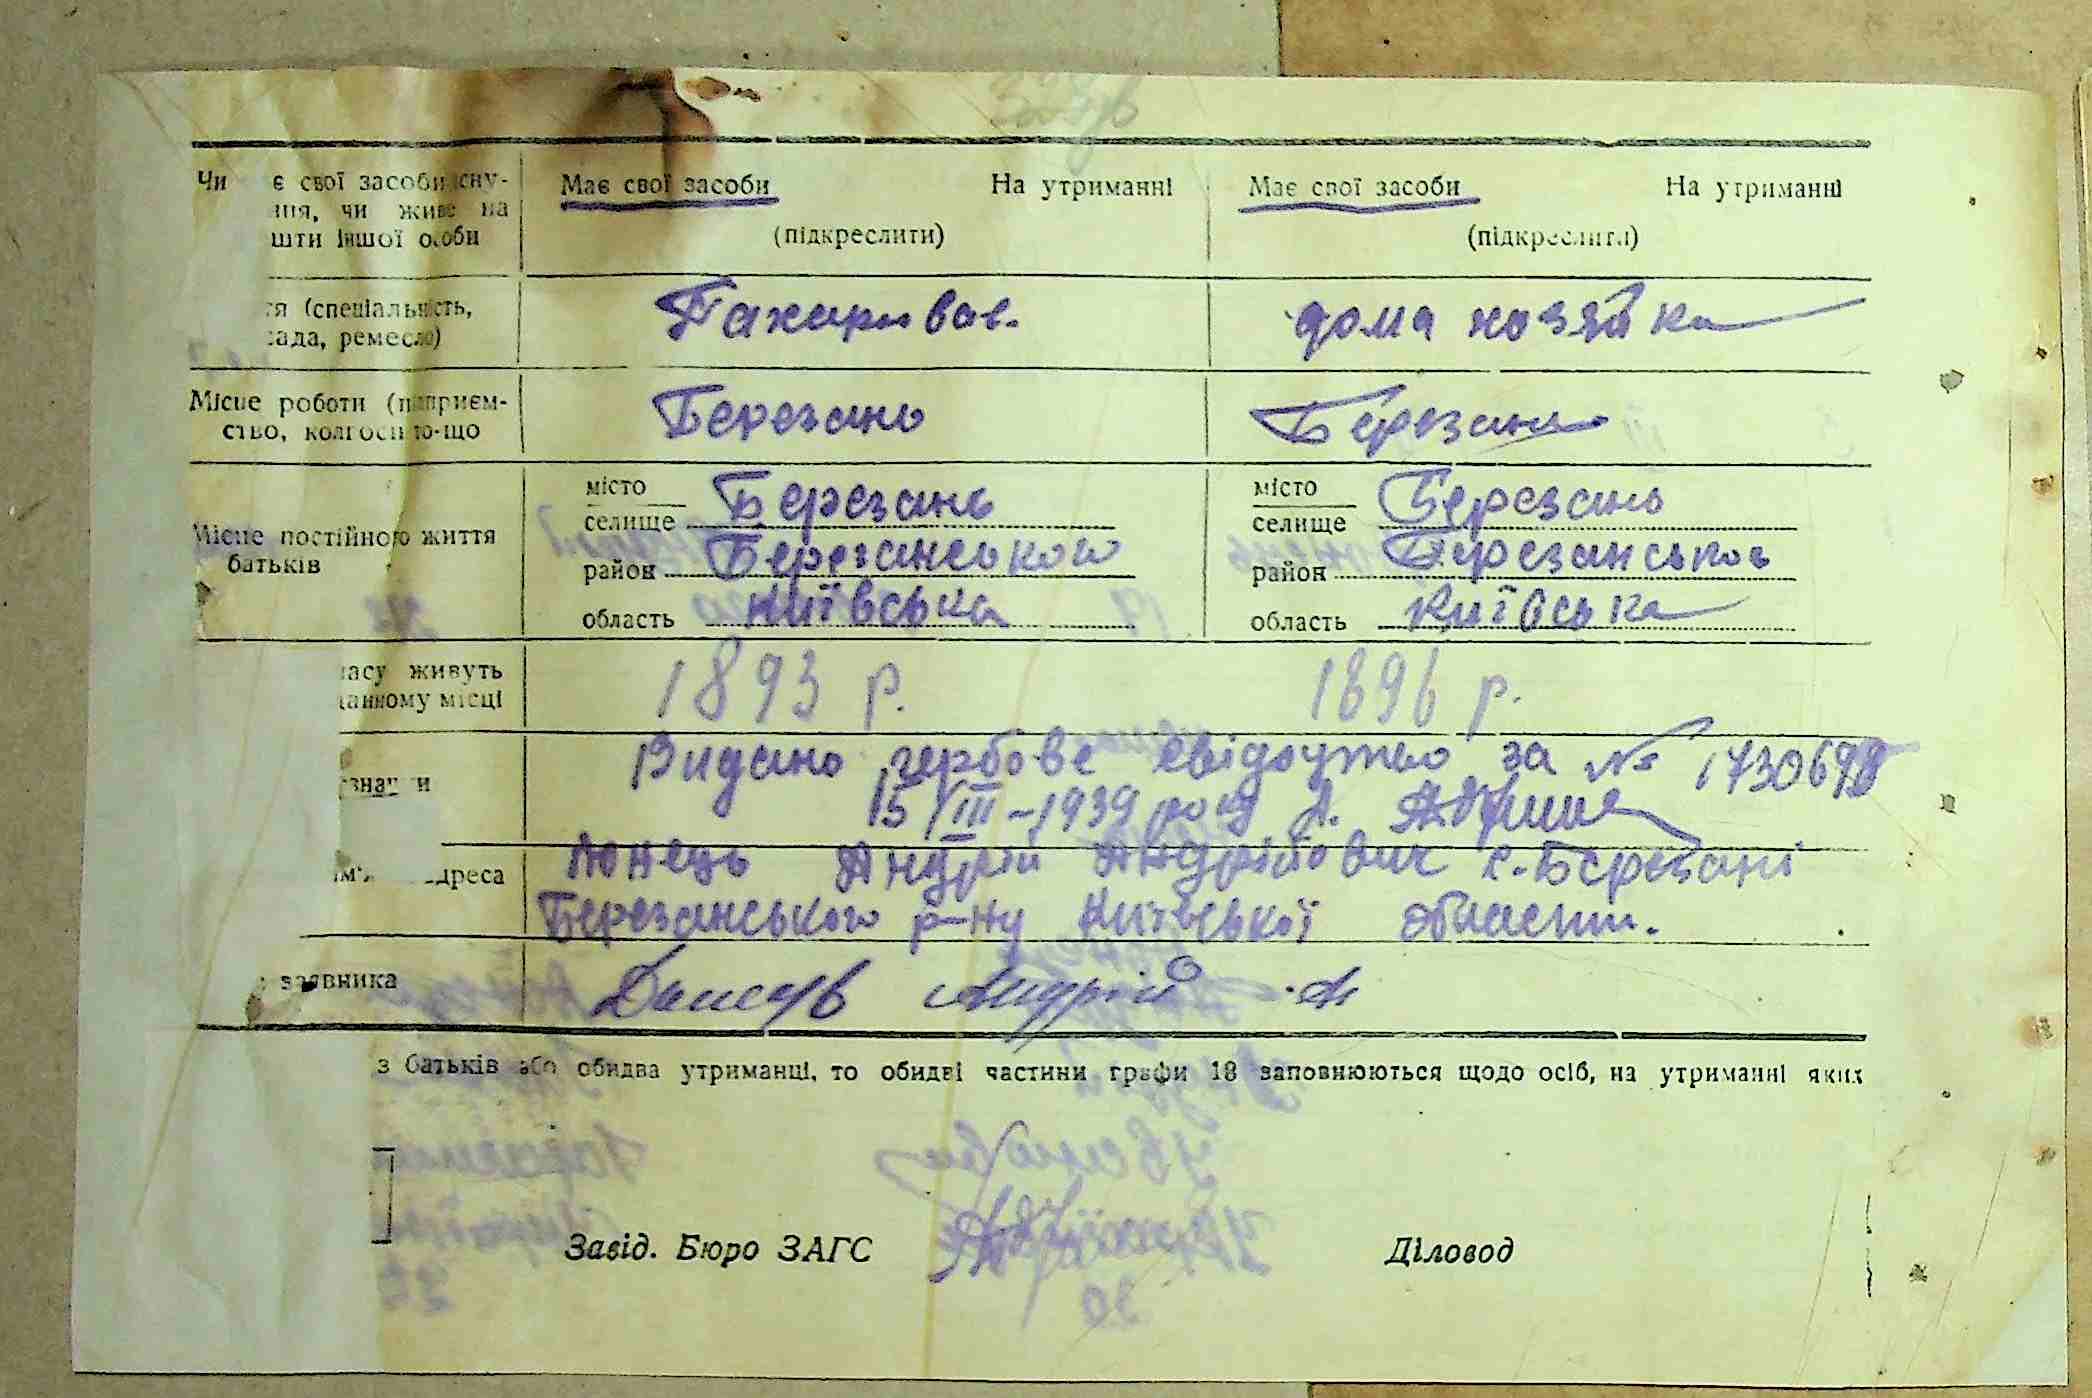 Чи є свої засоби існу-
ння, чи живе на
шти іншої особи
Має свої засоби На утриманні
(підкреслити)
Має свої засоби На утриманні
(підкреслити)
тя (спеціальність,
сада, ремесло)
дома хозяйка
Місце роботи (підприєм-
ство, колгосп то-що
Березань
Березань
Місце постійного життя
батьків
місто
селище Березань
район Березанського
область Київська
місто
селище Березань
район
область Київська
часу живуть
данному місці
1893 р.
1896 р.
Видано гербове свідоцтво за №
15/III-1939 року
адреса
Андрій Андрійович с. Березані
Березанського р-ну Київської області.
заявника
Андрій А
з батьків або обидва утриманці, то обидві частини графи 18 заповнюються щодо осіб, на утриманні яких
Завід. Бюро ЗАГС
Діловод